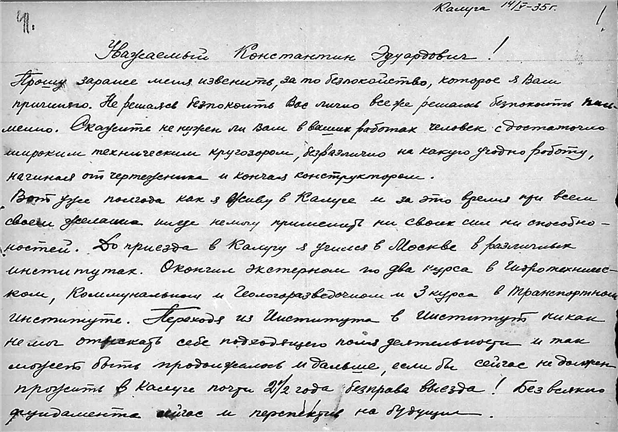 Калуга 14/V-35г.
Уважаемый Константин Эдуардович!
Прошу заранее меня извенить, за то безпокойство, которое я Вам
причиняю. Не решаясь безпокоить Вас лично все же решаюсь безпокоить пись-
менно. Скажите не нужен ли Вам в ваших работах человек с достаточно
широким техническим кругозором, безразлично на какую угодно работу,
начиная от чертежника и кончая конструктором.
Вот уже полгода как я живу в Калуге и за это время при всем
своем желании нигде не могу применить ни своих сил ни способно-
ностей. До приезда в Калугу я учился в Москве в различных
институтах. Окончил экстерном по два курса в Гидротехничес-
ком, Коммунальном и Геологоразведочном и 3 курса в Транспортном
институте. Переходя из Института в Институт никак
не мог отыскать себе подходящего поля деятельности и так
может быть продолжалось и дальше, если бы сейчас не должен
прожить в Калуге почти 2 1/2 года без права выезда! Без всякого
фундамента сейчас и перспектив на будущее.